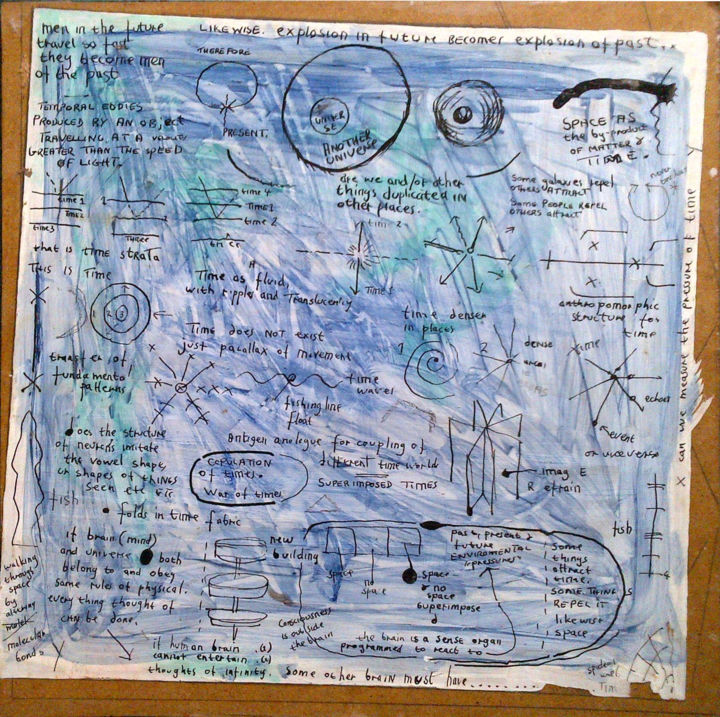 men in the future
travel so fast
they become men
of the past
LIKEWISE. explosion in future becomes explosion of past...
THEREFORE
PRESENT.
UNIVER
SE
ANOTHER
UNIVERSE
SPACE AS
the by-product
OF MATTER &
TIME.
TEMPORAL EDDIES
PRODUCED BY AN OBject
TRAVELLING AT A
GREATER THAN THE SPEED
OF LIGHT.
are we and/or other
things duplicated in
other places.
Some galaxies repel
OTHERS ATTRACT
Some PEOPLE REPEL
OTHERS attract
time 1
TIME 2
time 3
1
THREE
time 4
TIME 1
time 2
time 2
Time 1
that is TIME STRATA
This is Time
Time as fluid,
with ripples and Translucency
X can we measure the pressure of time
anthropomorphic
structure for
time
Time does NOT exist
just parallax of movement
time denser
in places
1
2
DENSE
areas
time
1
2
3
fundamental
patterns
time
waves
fishing line
float
echoes
event
or viceversa
Does the structure
of neurons imitate
the vowel shape,
or shapes of things
seen etc etc
fish
folds in time fabric
COPULATION
of times.
War of times
antigen analogue for coupling of
different time worlds
SUPERIMPOSED TIMES
imag E
R efrain
fish
if brain (mind)
and universe both
belong to and obey
same rules of physical.
every thing thought of
can be done.
walking
through
space
by
molecular
bonds
new
building
space
no
space
space
& no
space
superimpose
past, present &
future
ENVIROMENTAL
"pressures"
Some
things
attract
time.
SOME THINGS
REPEL IT
likewise
space
Consciousness
is outside
the brain
the brain is a sense organ
programmed to react to
if human brain (s)
cannot entertain (s)
thoughts of infinity. Some other brain must have........